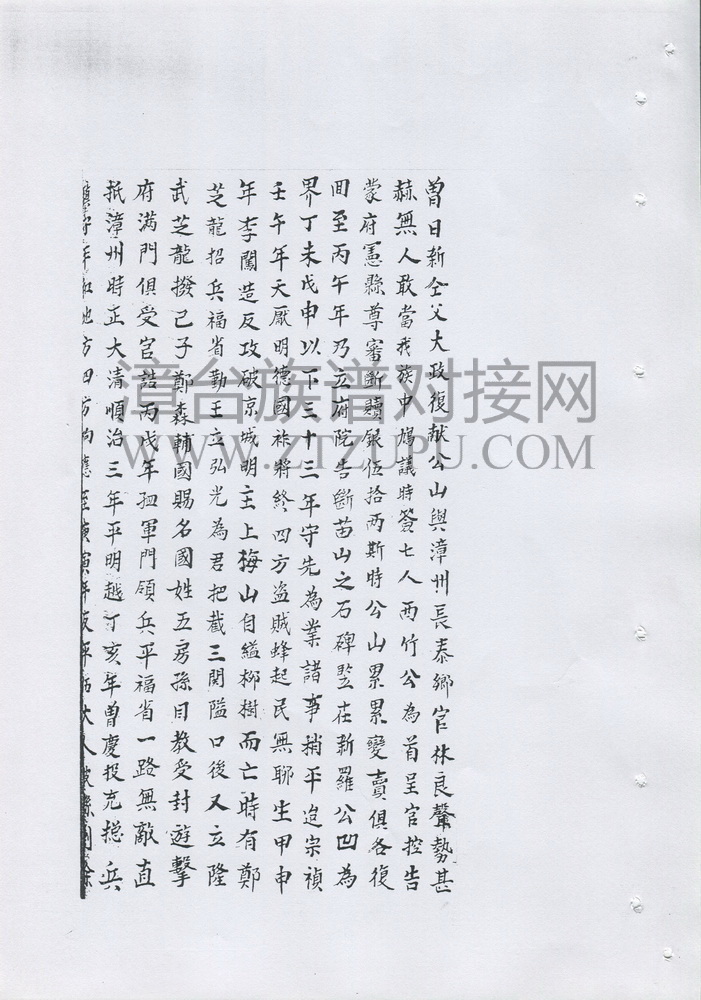 曽日新仝父大政復献公山與漳州長泰鄉官林良聲勢甚
赫無人敢當我族中鳩議時簽七人西竹公為首呈官控告
蒙府憲縣尊審斷贖銀伍拾两斯時公山累累變賣俱各復
回至丙午年乃立府院告斷苗山之石碑竪在新羅公凹為
界丁未戊申以下三十三年守先為業諸事稍平迨宗禎
壬午年天厭明德國祚將終四方盗賊蜂起民無聊生甲申
年李闖造反攻破京城明主上梅山自縊柳樹而亡時有鄭
芝龍招兵福省勤王立弘光為君把截三関隘口後又立隆
武芝龍撥己子鄭森輔國賜名國姓五房孫目教受封遊擊
府满門俱受官誥丙戊年 軍門領兵平福省一路無敵直
抵漳州時正大清順治三年平明越丁亥年曽慶投充捴兵
地方四方响應至庚寅年 大人
漳台族谱对接网
WWW.ZTZUPU.COM